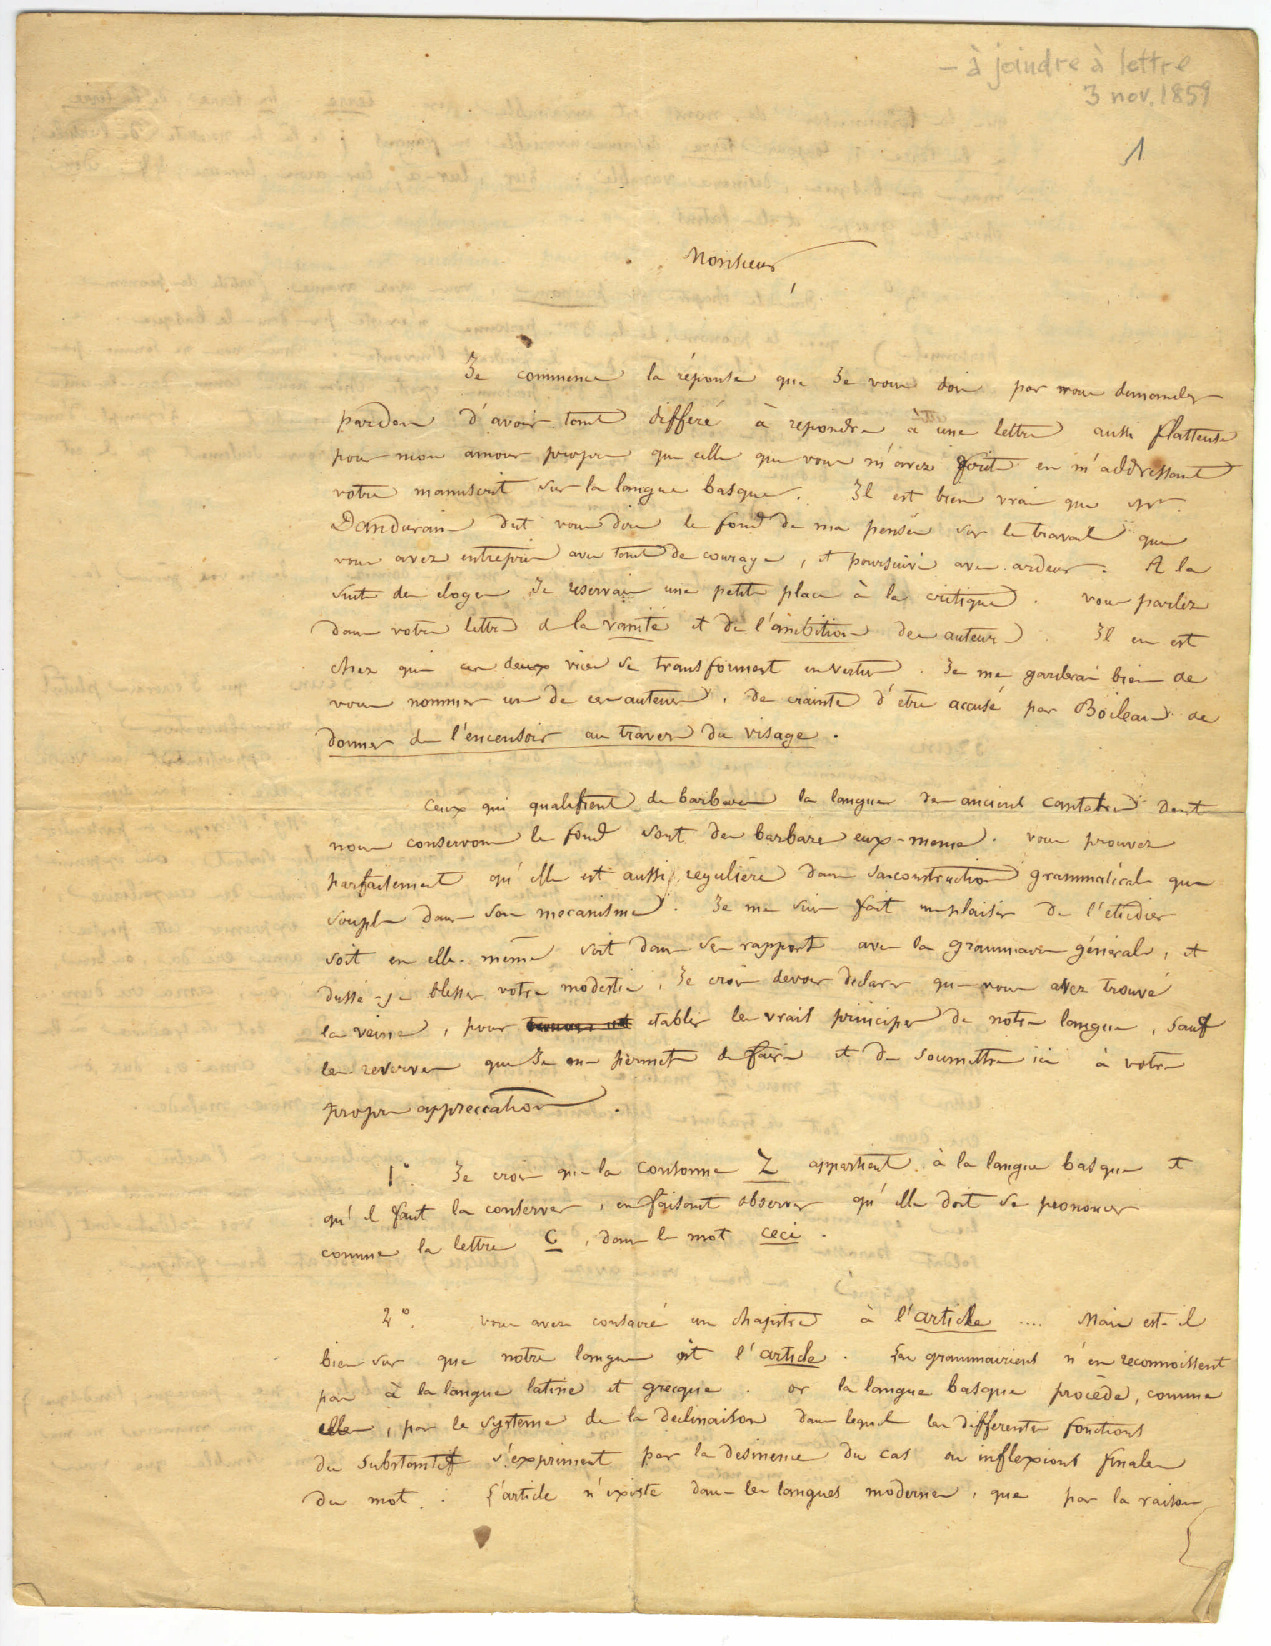 – à joindre à lettre
3 nov. 1859
1
Monsieur,
Je commence la réponse que Je vous dois par vous demander
pardon d'avoir tant différé à repondre à une lettre aussi flatteuse
pour mon amour propre que celle que vous m'avez écrite en m'addressant
votre manuscrit sur la langue basque. Il est bien vrai que Mr.
Dandurain dut vous dire le fond de ma pensée sur le travail que
vous avez entrepris avec tant de courage, et poursuivi avec ardeur. A la
suite des éloges Je reservais une petite place à la critique. vous parlez
dans votre lettre de la vanité et de l'ambition des auteurs. Il en est
chez qui ces deux vices se transforment en vertus. Je me garderai bien de
vous nommer un de ces auteurs, de crainte d'être accusé par Boileau de
donner de l'encensoir au travers du visage.
Ceux qui qualifient de barbare la langue des anciens cantabres dont
nous conservons le fond sont des barbares eux-memes. vous prouvez
parfaitement qu'elle est aussi régulière dans sa construction grammaticale que
souple dans son mecanisme. Je me suis fait un plaisir de l'étudier
soit en elle-même soit dans ses rapports avec la grammaire générale, et
dussé-je blesser votre modestie, Je crois devoir declarer que vous avez trouvé
la veine, pour etablir les vrais principes de notre langue, sauf
les reserves que Je me permets de faire et de soumettre ici à votre
propre appreciation.
1°. Je crois que la consonne Z appartient à la langue basque et
qu'il faut la conserver, en faisant observer qu'elle doit se prononcer
comme la lettre C, dans le mot ceci.
2°. vous avez consacré un chapitre à l'article .... Mais est-il
bien sur que notre langue ait l'article. Les grammairiens n'en reconnoissent
pas à la langue latine et grecque. or la langue basque procède, comme
elles, par le systeme de la declinaison dans lequel les differentes fonctions
du substantif s'expriment par la desinence du cas ou inflexions finales
du mot. L'article n'existe dans les langues modernes, que par la raison